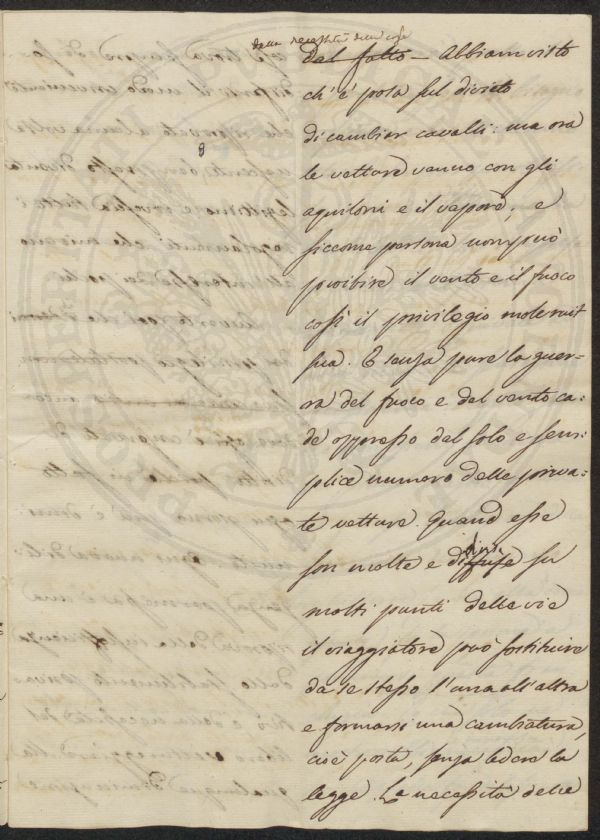 della necessità delle cose
dal fatto — Abbiam visto
ch'è posta sul divieto
di cambiar cavalli: ma ora
le vetture vanno con gli
aquiloni e il vapore; e
siccome persona non può
proibire il vento e il fuoco
così il privilegio moleruit
sua. E senza pure la guer=
ra del fuoco e del vento ca=
de oppresso dal solo e sem=
plice numero delle priva=
te vetture. Quand esse
son molte e diffuse su
molti punti delle vie
il viaggiatore può sostituire
da se stesso l'una all'altra
e formarsi una cambiatura,
cioè posta, senza ledere la
legge. La necessità delle